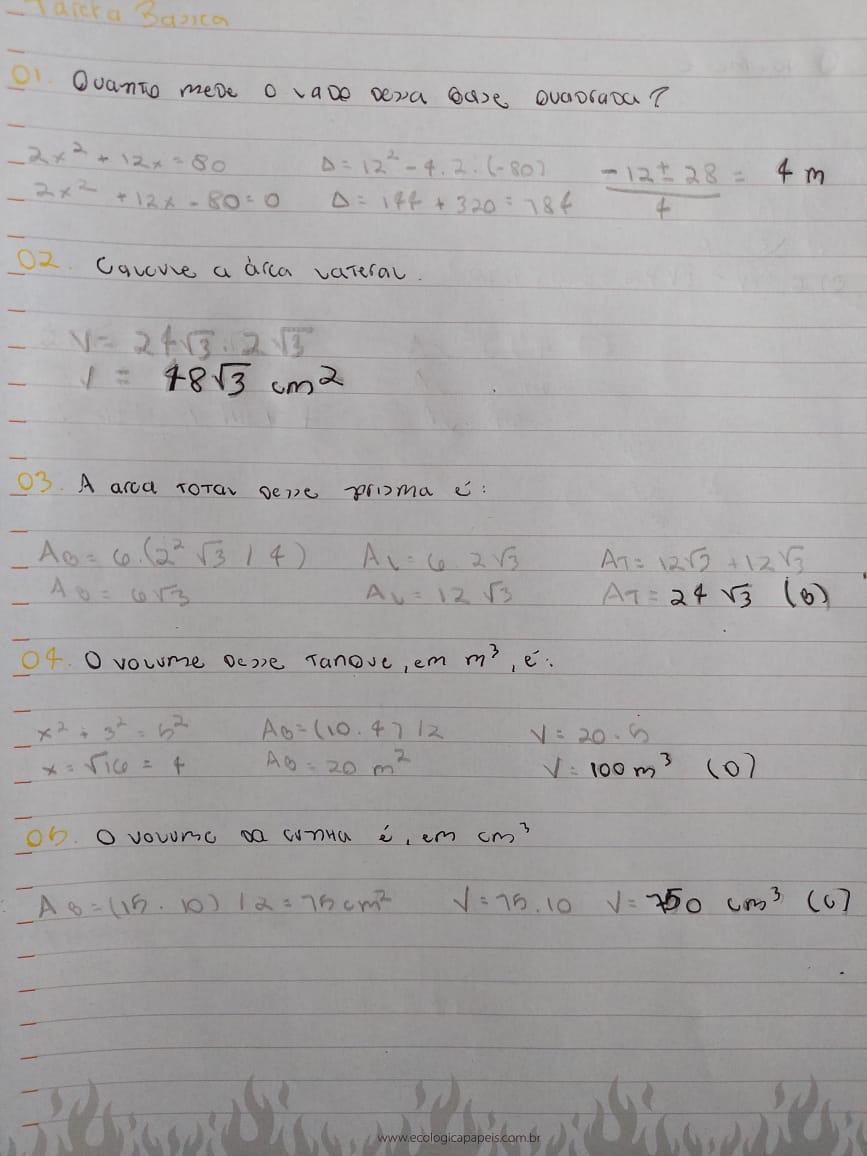 Tarefa Basica
01. Quanto mede o lado dessa base quadrada?
2x² + 12x = 80 Δ = 12² - 4.2.(-80) -12 ± 28 = 4 m
2x² + 12x - 80 = 0 Δ = 144 + 320 = 784 4
02. Calcule a área lateral.
V = 24√3 . 2√3
V = 48√3 cm²
03. A area total desse prisma é:
AB = 6.(2²√3 / 4) AL = 6.2√3 AT = 12√3 + 12√3
AB = 6√3 AL = 12√3 AT = 24√3 (B)
04. O volume desse tanque, em m³, é:
x² + 3² = 5² AB = (10.4) / 2 V = 20.5
x = √16 = 4 AB = 20 m² V = 100 m³ (D)
05. O volume da cunha é, em cm³
AB = (15.10) / 2 = 75 cm² V = 75.10 V = 750 cm³ (C)
www.ecologicapapeis.com.br